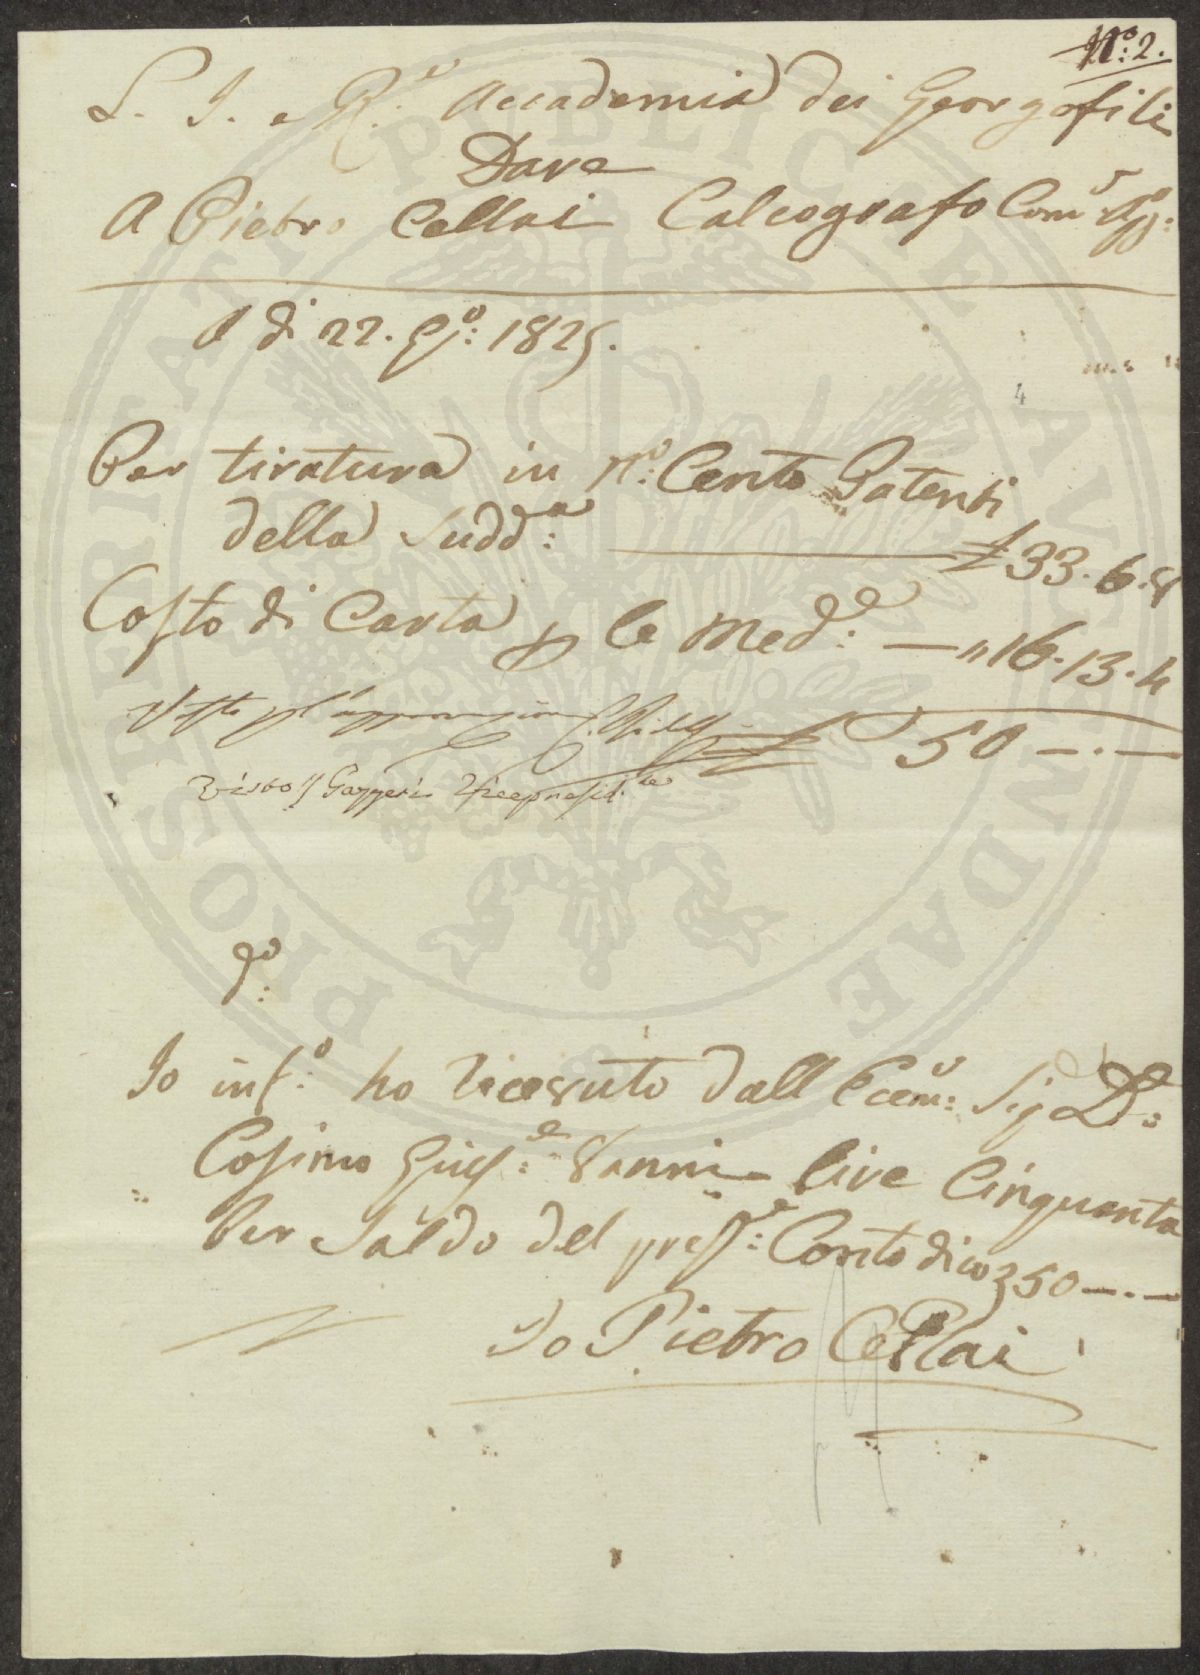 N.º 2.
L. I. e R.e Accademia dei Georgofili
Dare
A Pietro Cellai Calcografo Com
A di 22. G.º: 1825.
4
Per tiratura in N.º: Cento Patenti
della Sudd.a: £ 33. 6. 8
Costo di Carta p le Med.e: — " 16. 13. 4
Visto
£ 50 —. —
Visto G Gazzeri Vicepresid.te
Io inf.º: ho ricevuto dall Eccm.º: Sig D.:
Cosimo Gius.e: Vanni lire Cinquanta
Per Saldo del pres.e: Conto dico £ 50 —. —
Io Pietro Cellai
PROSPERITATI PUBLICAE AUGENDAE